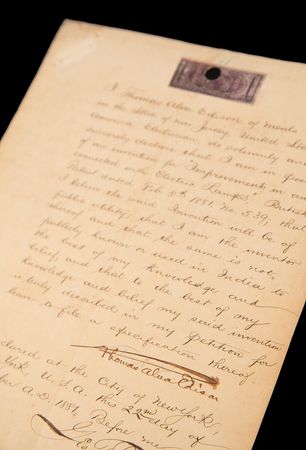 I Thomas Alva Edison of Menlo
in the State of New Jersey United Sta
America Electrician, do solemnly and
sincerely declare that I am in poss
of an invention for "Improvements in and
connected with Electric Lamps", British
Patent dated Feb 8th 1881 No. 539; that
I believe the said Invention will be of
public utility; that I am the inventor
thereof and that the same is not
publicly known or used in India to
the best of my knowledge and
belief and that to the best of my
knowledge and belief my said invention
is truly described in my Petition for
leave to file a specification thereof
Thomas Alva Edison
clared at the City of New York,
York U.S.A. this 22nd day of
ber A.D. 1881,
Before me